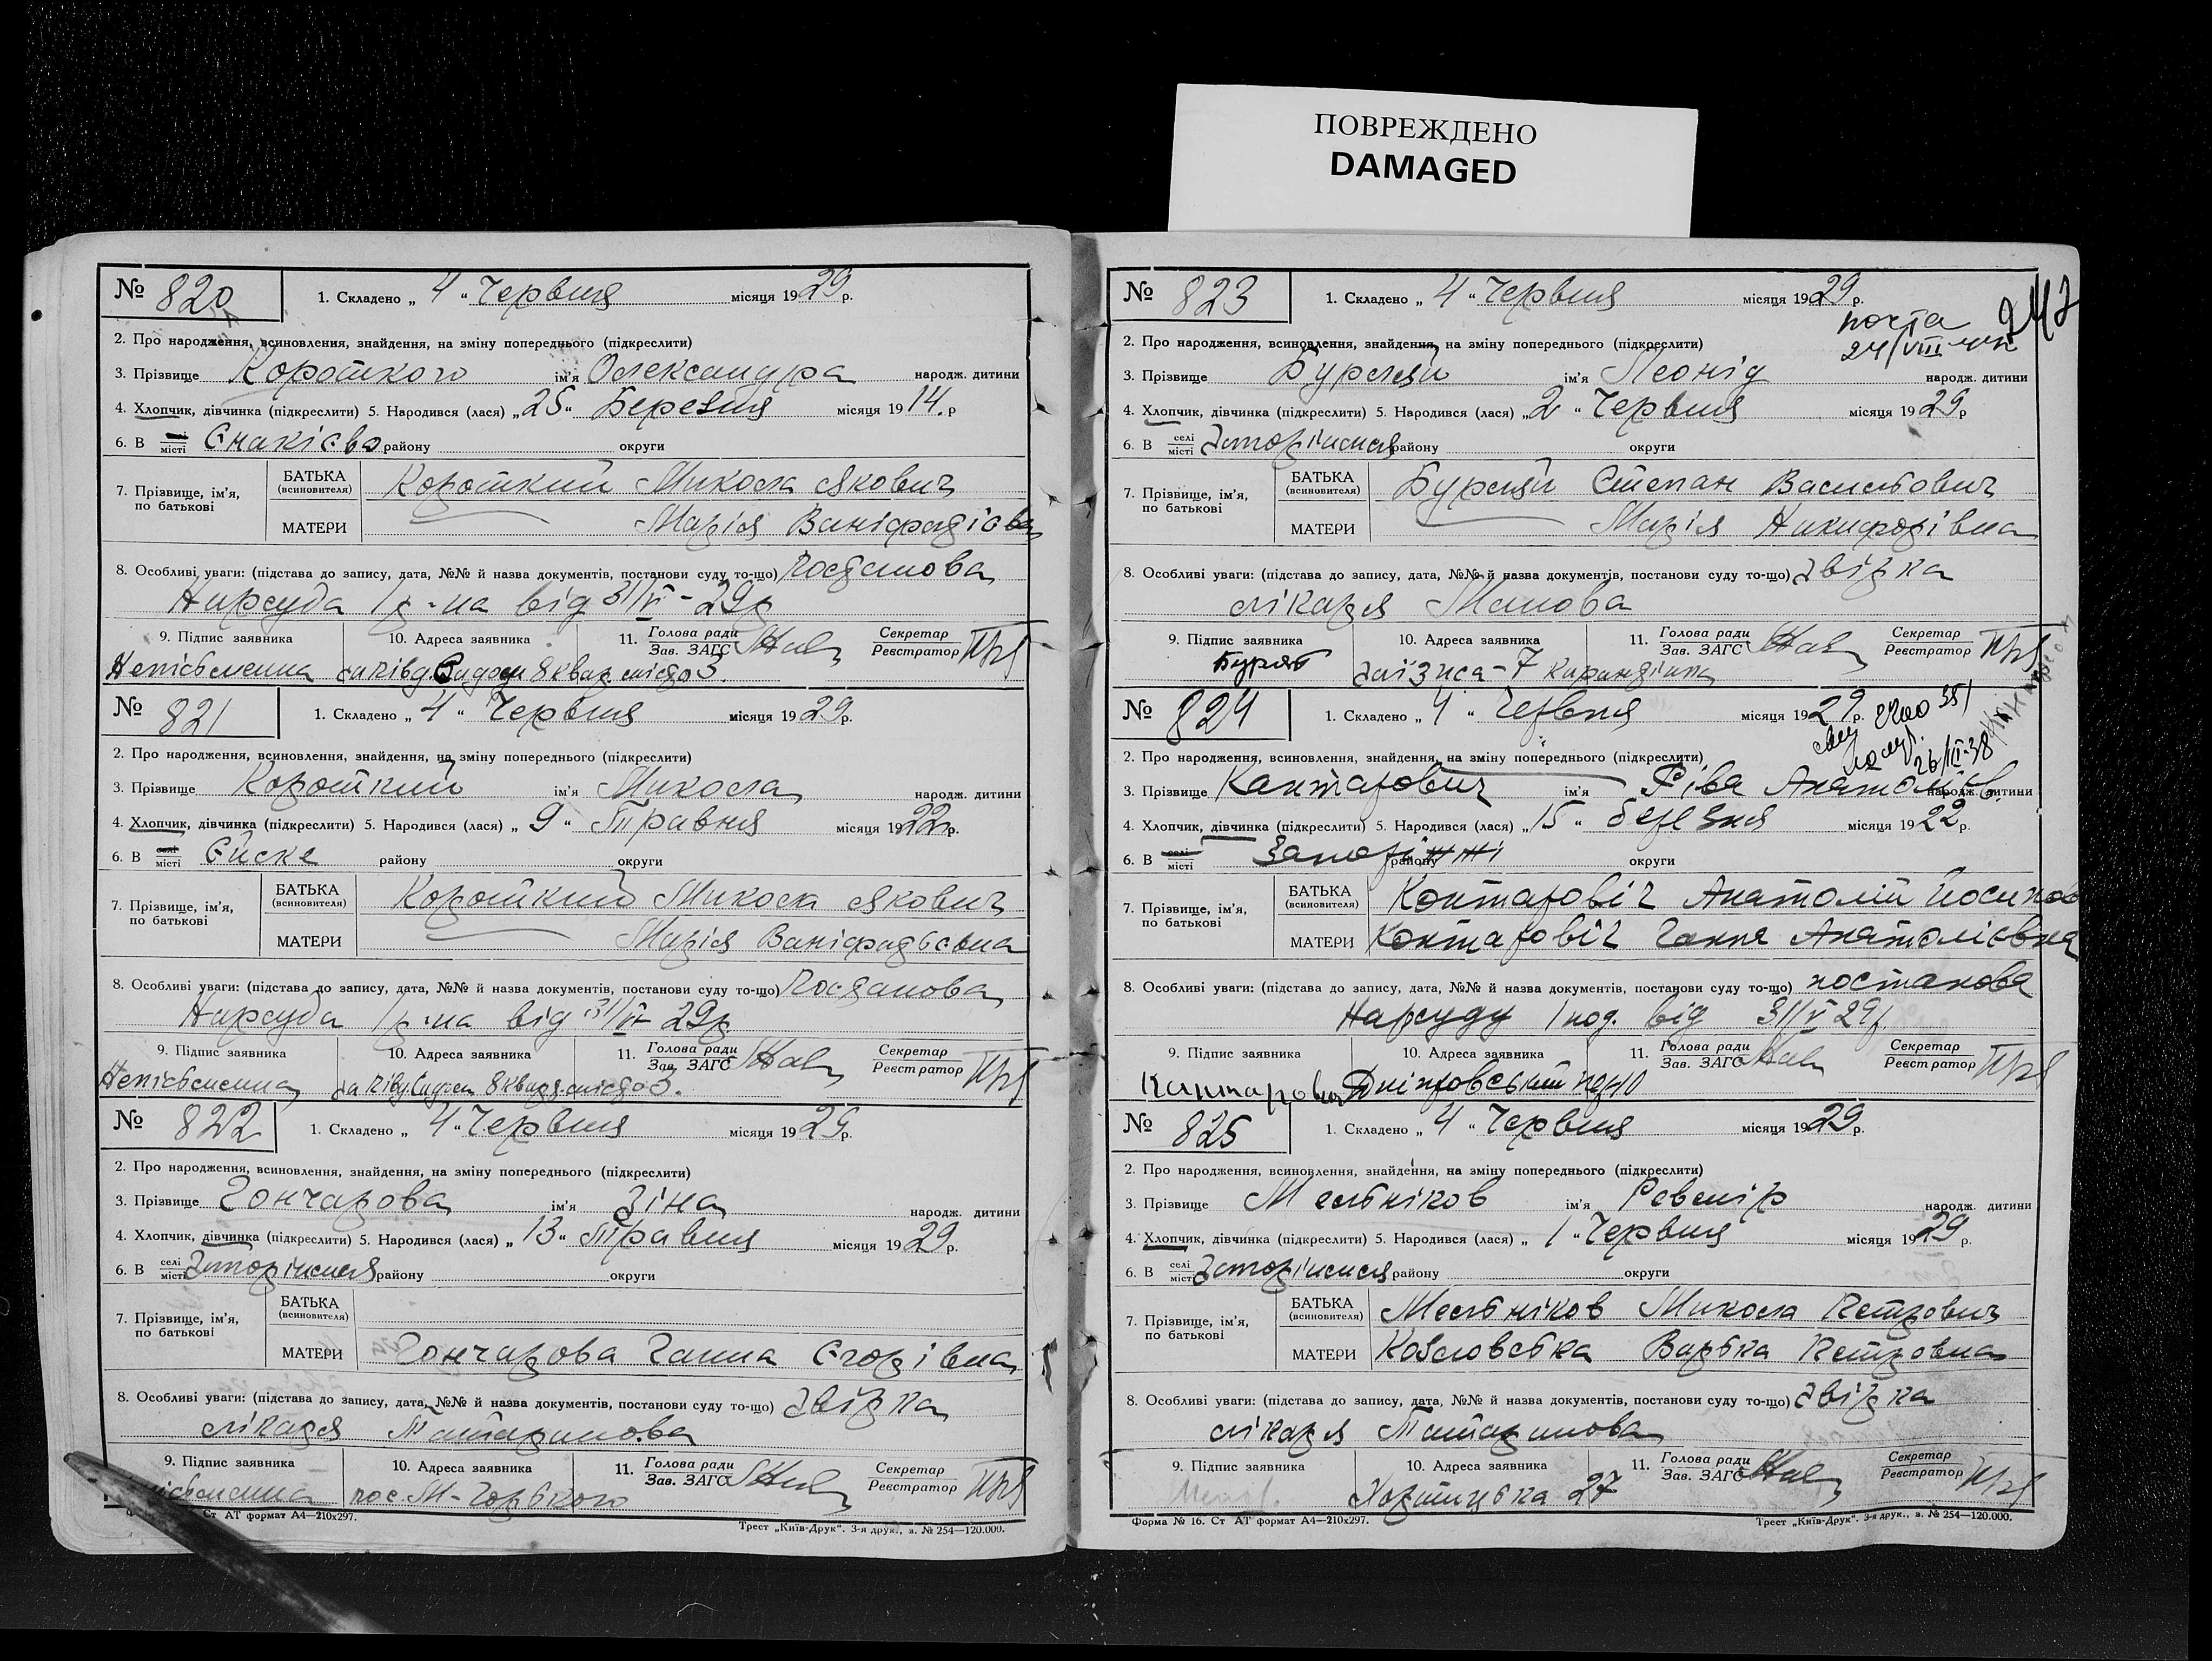 ПОВРЕЖДЕНО
DAMAGED
№ 820
1. Складено „ 4 “ Червня місяця 1929 р.
2. Про народження, всиновлення, знайдення, на зміну попереднього (підкреслити)
3. Прізвище Короткого ім'я Олександра народж. дитини
4. Хлопчик, дівчинка (підкреслити) 5. Народився (лася) „ 25 “ Березня місяця 1914. р
6. В селі місті Єнакієво району округи
7. Прізвище, ім'я, по батькові
БАТЬКА (всиновителя) Короткий Микола Якович
МАТЕРИ Марія
8. Особливі уваги: (підстава до запису, дата, №№ й назва документів, постанови суду то-що) Постанова
Нарсуда 1 р-на від 31/V - 29р
9. Підпис заявника 10. Адреса заявника 11. Голова ради Зав. ЗАГС Секретар Реєстратор
Неписьменна 8 квар.
№ 821
1. Складено „ 4 “ Червня місяця 1929 р.
2. Про народження, всиновлення, знайдення, на зміну попереднього (підкреслити)
3. Прізвище Короткий ім'я Микола народж. дитини
4. Хлопчик, дівчинка (підкреслити) 5. Народився (лася) „ 9 “ Травня місяця 1922 р.
6. В селі місті Єйске району округи
7. Прізвище, ім'я, по батькові
БАТЬКА (всиновителя) Короткий Микола Якович
МАТЕРИ Марія
8. Особливі уваги: (підстава до запису, дата, №№ й назва документів, постанови суду то-що) Постанова
Нарсуда 1 р-на від 31/V 29р
9. Підпис заявника 10. Адреса заявника 11. Голова ради Зав. ЗАГС Секретар Реєстратор
Неписьменна
№ 822
1. Складено „ 4 “ Червня місяця 1929 р.
2. Про народження, всиновлення, знайдення, на зміну попереднього (підкреслити)
3. Прізвище Гончарова ім'я Зіна народж. дитини
4. Хлопчик, дівчинка (підкреслити) 5. Народився (лася) „ 13 “ Травня місяця 1929 р.
6. В селі місті Запоріжжя району округи
7. Прізвище, ім'я, по батькові
БАТЬКА (всиновителя)
МАТЕРИ Гончарова Ганна Єгорівна
8. Особливі уваги: (підстава до запису, дата, №№ й назва документів, постанови суду то-що) Звірка
лікаря Татаринова
9. Підпис заявника 10. Адреса заявника 11. Голова ради Зав. ЗАГС Секретар Реєстратор
пос. М-Горького
Ст АТ формат А4—210x297.
Трест „Київ-Друк“. 3-я друк., з. № 254—120.000.
№ 823
1. Складено „ 4 “ Червня місяця 1929 р.
247
почта
24/VIII
2. Про народження, всиновлення, знайдення, на зміну попереднього (підкреслити)
3. Прізвище ім'я Леонід народж. дитини
4. Хлопчик, дівчинка (підкреслити) 5. Народився (лася) „ 2 “ Червня місяця 1929 р
6. В селі місті Запоріжжя району округи
7. Прізвище, ім'я, по батькові
БАТЬКА (всиновителя) Степан Васильович
МАТЕРИ Марія Никифорівна
8. Особливі уваги: (підстава до запису, дата, №№ й назва документів, постанови суду то-що) Звірка
лікаря
9. Підпис заявника 10. Адреса заявника 11. Голова ради Зав. ЗАГС Секретар Реєстратор
№ 824
1. Складено „ 4 “ Червня місяця 1929 р.
26/III-38
2. Про народження, всиновлення, знайдення, на зміну попереднього (підкреслити)
3. Прізвище Кантарович ім'я Ріва Анатоліїв. народж. дитини
4. Хлопчик, дівчинка (підкреслити) 5. Народився (лася) „ 15 “ березня місяця 1922 р.
6. В селі місті Запоріжжі району округи
7. Прізвище, ім'я, по батькові
БАТЬКА (всиновителя) Контаровіч Анатолій Йосипов
МАТЕРИ Контаровіч Ганна Анатоліевна
8. Особливі уваги: (підстава до запису, дата, №№ й назва документів, постанови суду то-що) постанова
Нарсуду 1 від 31/V 29р
9. Підпис заявника 10. Адреса заявника 11. Голова ради Зав. ЗАГС Секретар Реєстратор
№ 825
1. Складено „ 4 “ Червня місяця 1929 р.
2. Про народження, всиновлення, знайдення, на зміну попереднього (підкреслити)
3. Прізвище Мельніков ім'я Ревмір народж. дитини
4. Хлопчик, дівчинка (підкреслити) 5. Народився (лася) „ 1 “ Червня місяця 1929 р.
6. В селі місті Запоріжжя району округи
7. Прізвище, ім'я, по батькові
БАТЬКА (всиновителя) Мельніков Микола Петрович
МАТЕРИ Козловська Варька Петровна
8. Особливі уваги: (підстава до запису, дата, №№ й назва документів, постанови суду то-що) Звірка
лікаря Татаринова
9. Підпис заявника 10. Адреса заявника 11. Голова ради Зав. ЗАГС Секретар Реєстратор
Хортицька 27
Форма № 16. Ст АТ формат А4—210x297.
Трест „Київ-Друк“. 3-я друк., з. № 254—120.000.